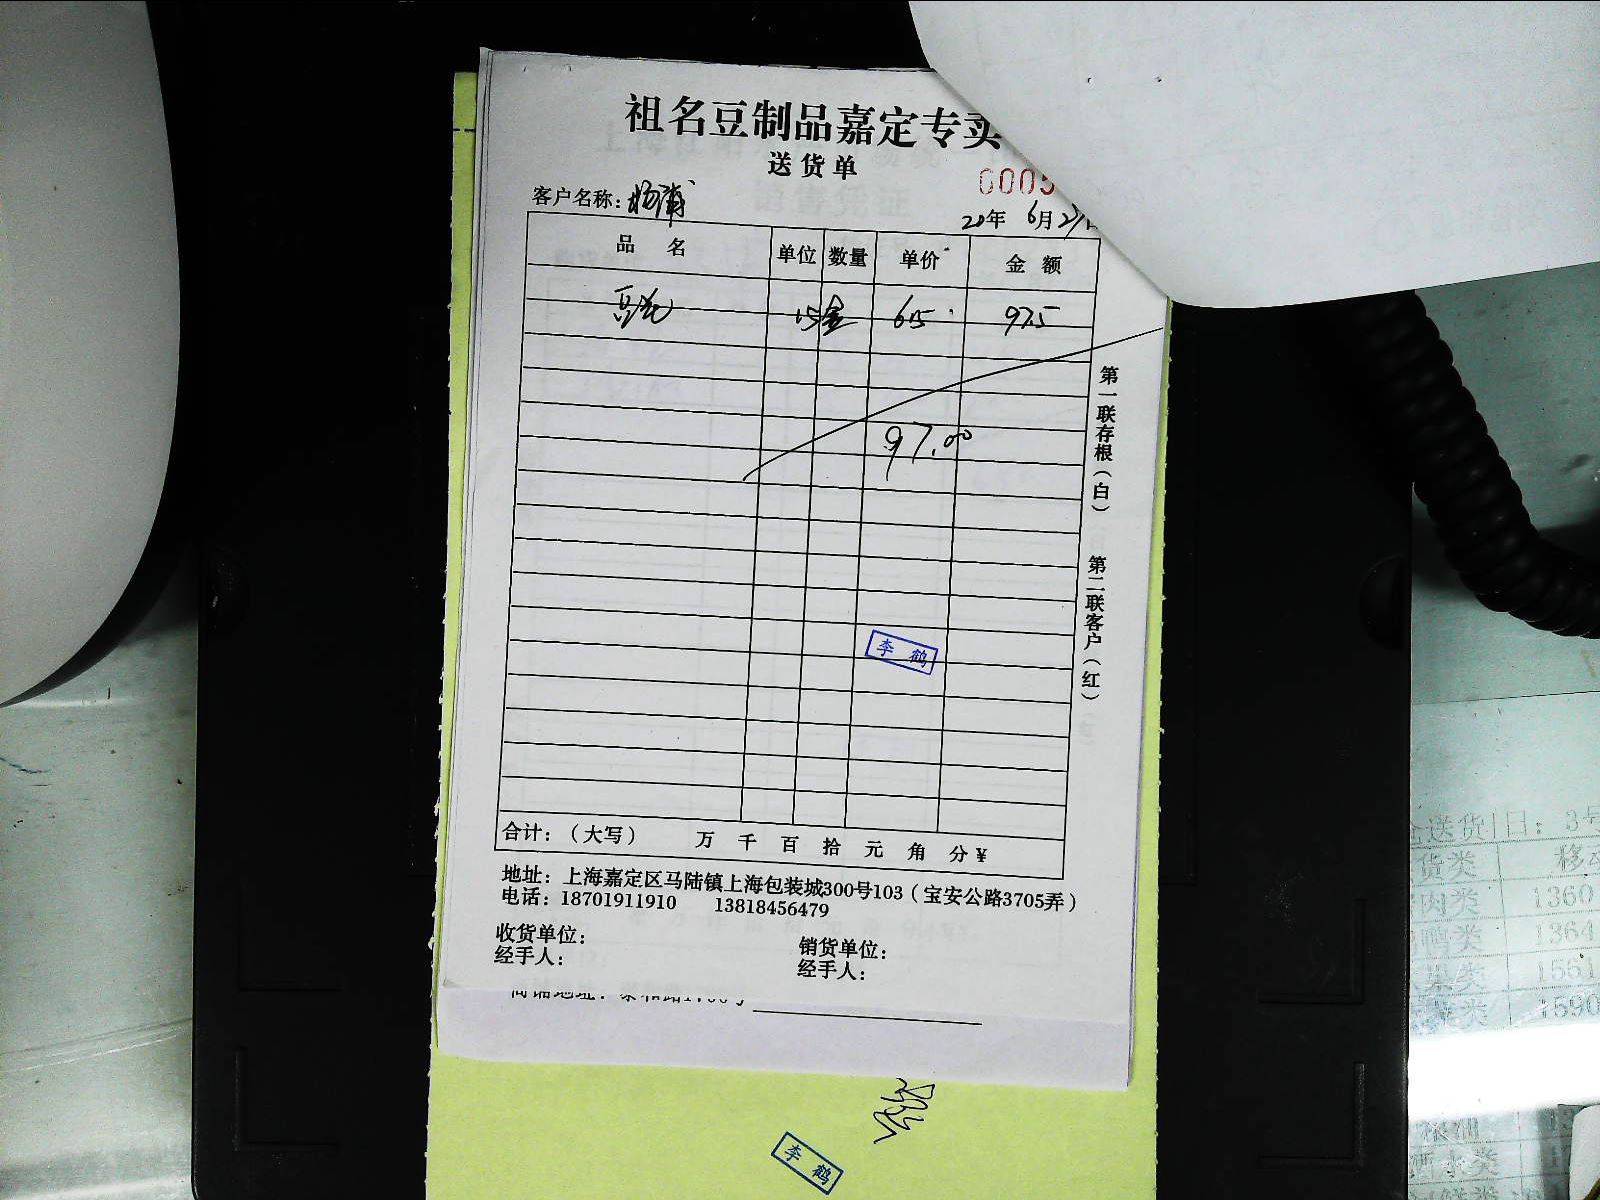 祖名豆制品嘉定专卖
送货单
0005
客户名称：杨浦
20年 6月27日
品 名 单位 数量 单价 金 额
豆花 15盒 6.5 97.5
97.00
第一联存根（白） 第二联客户（红）
李鹤
合计：（大写） 万 千 百 拾 元 角 分 ¥
地址：上海嘉定区马陆镇上海包装城300号103（宝安公路3705弄）
电话：18701911910 13818456479
收货单位： 销货单位：
经手人： 经手人：
李鹤
送货 日：3号
货类 移动
肉类 1360
鸭类 1364
类 1561
类 1590
水类